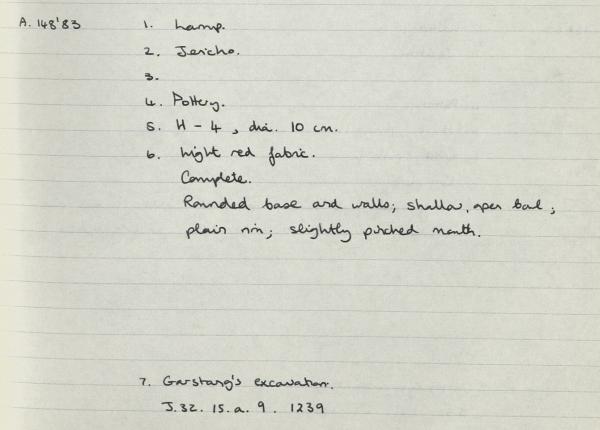 A. 148'83 1. Lamp.
2. Jericho.
3.
4. Pottery.
5. H - 4, dia. 10 cm.
6. Light red fabric.
Complete.
Rounded base and walls; shallow, open bowl;
plain rim; slightly pinched mouth.
7. Garstang's excavation.
J.32. 15.a. 9. 1239